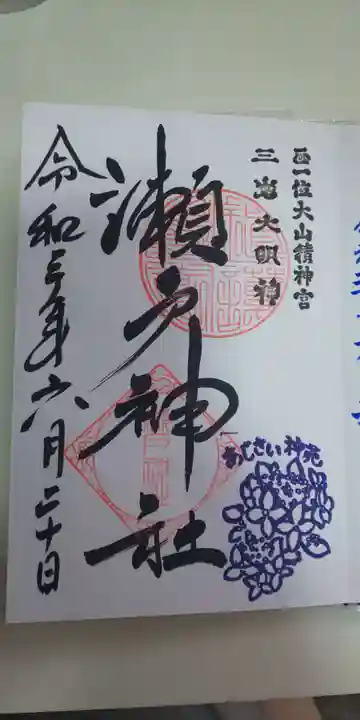 正一位大山積神宮
三嶌大明神
瀬戸神社
あじさい神苑
令和三年六月二十日